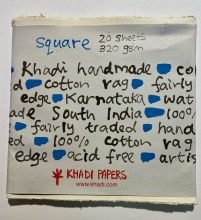 square 20 sheets
320 gsm
Khadi handmade co
d cotton rag fairly
edge Karnataka wat
ade South India 100%
fairly traded hand
ed 100% cotton rag
edge acid free artis
KHADI PAPERS
www.khadi.com